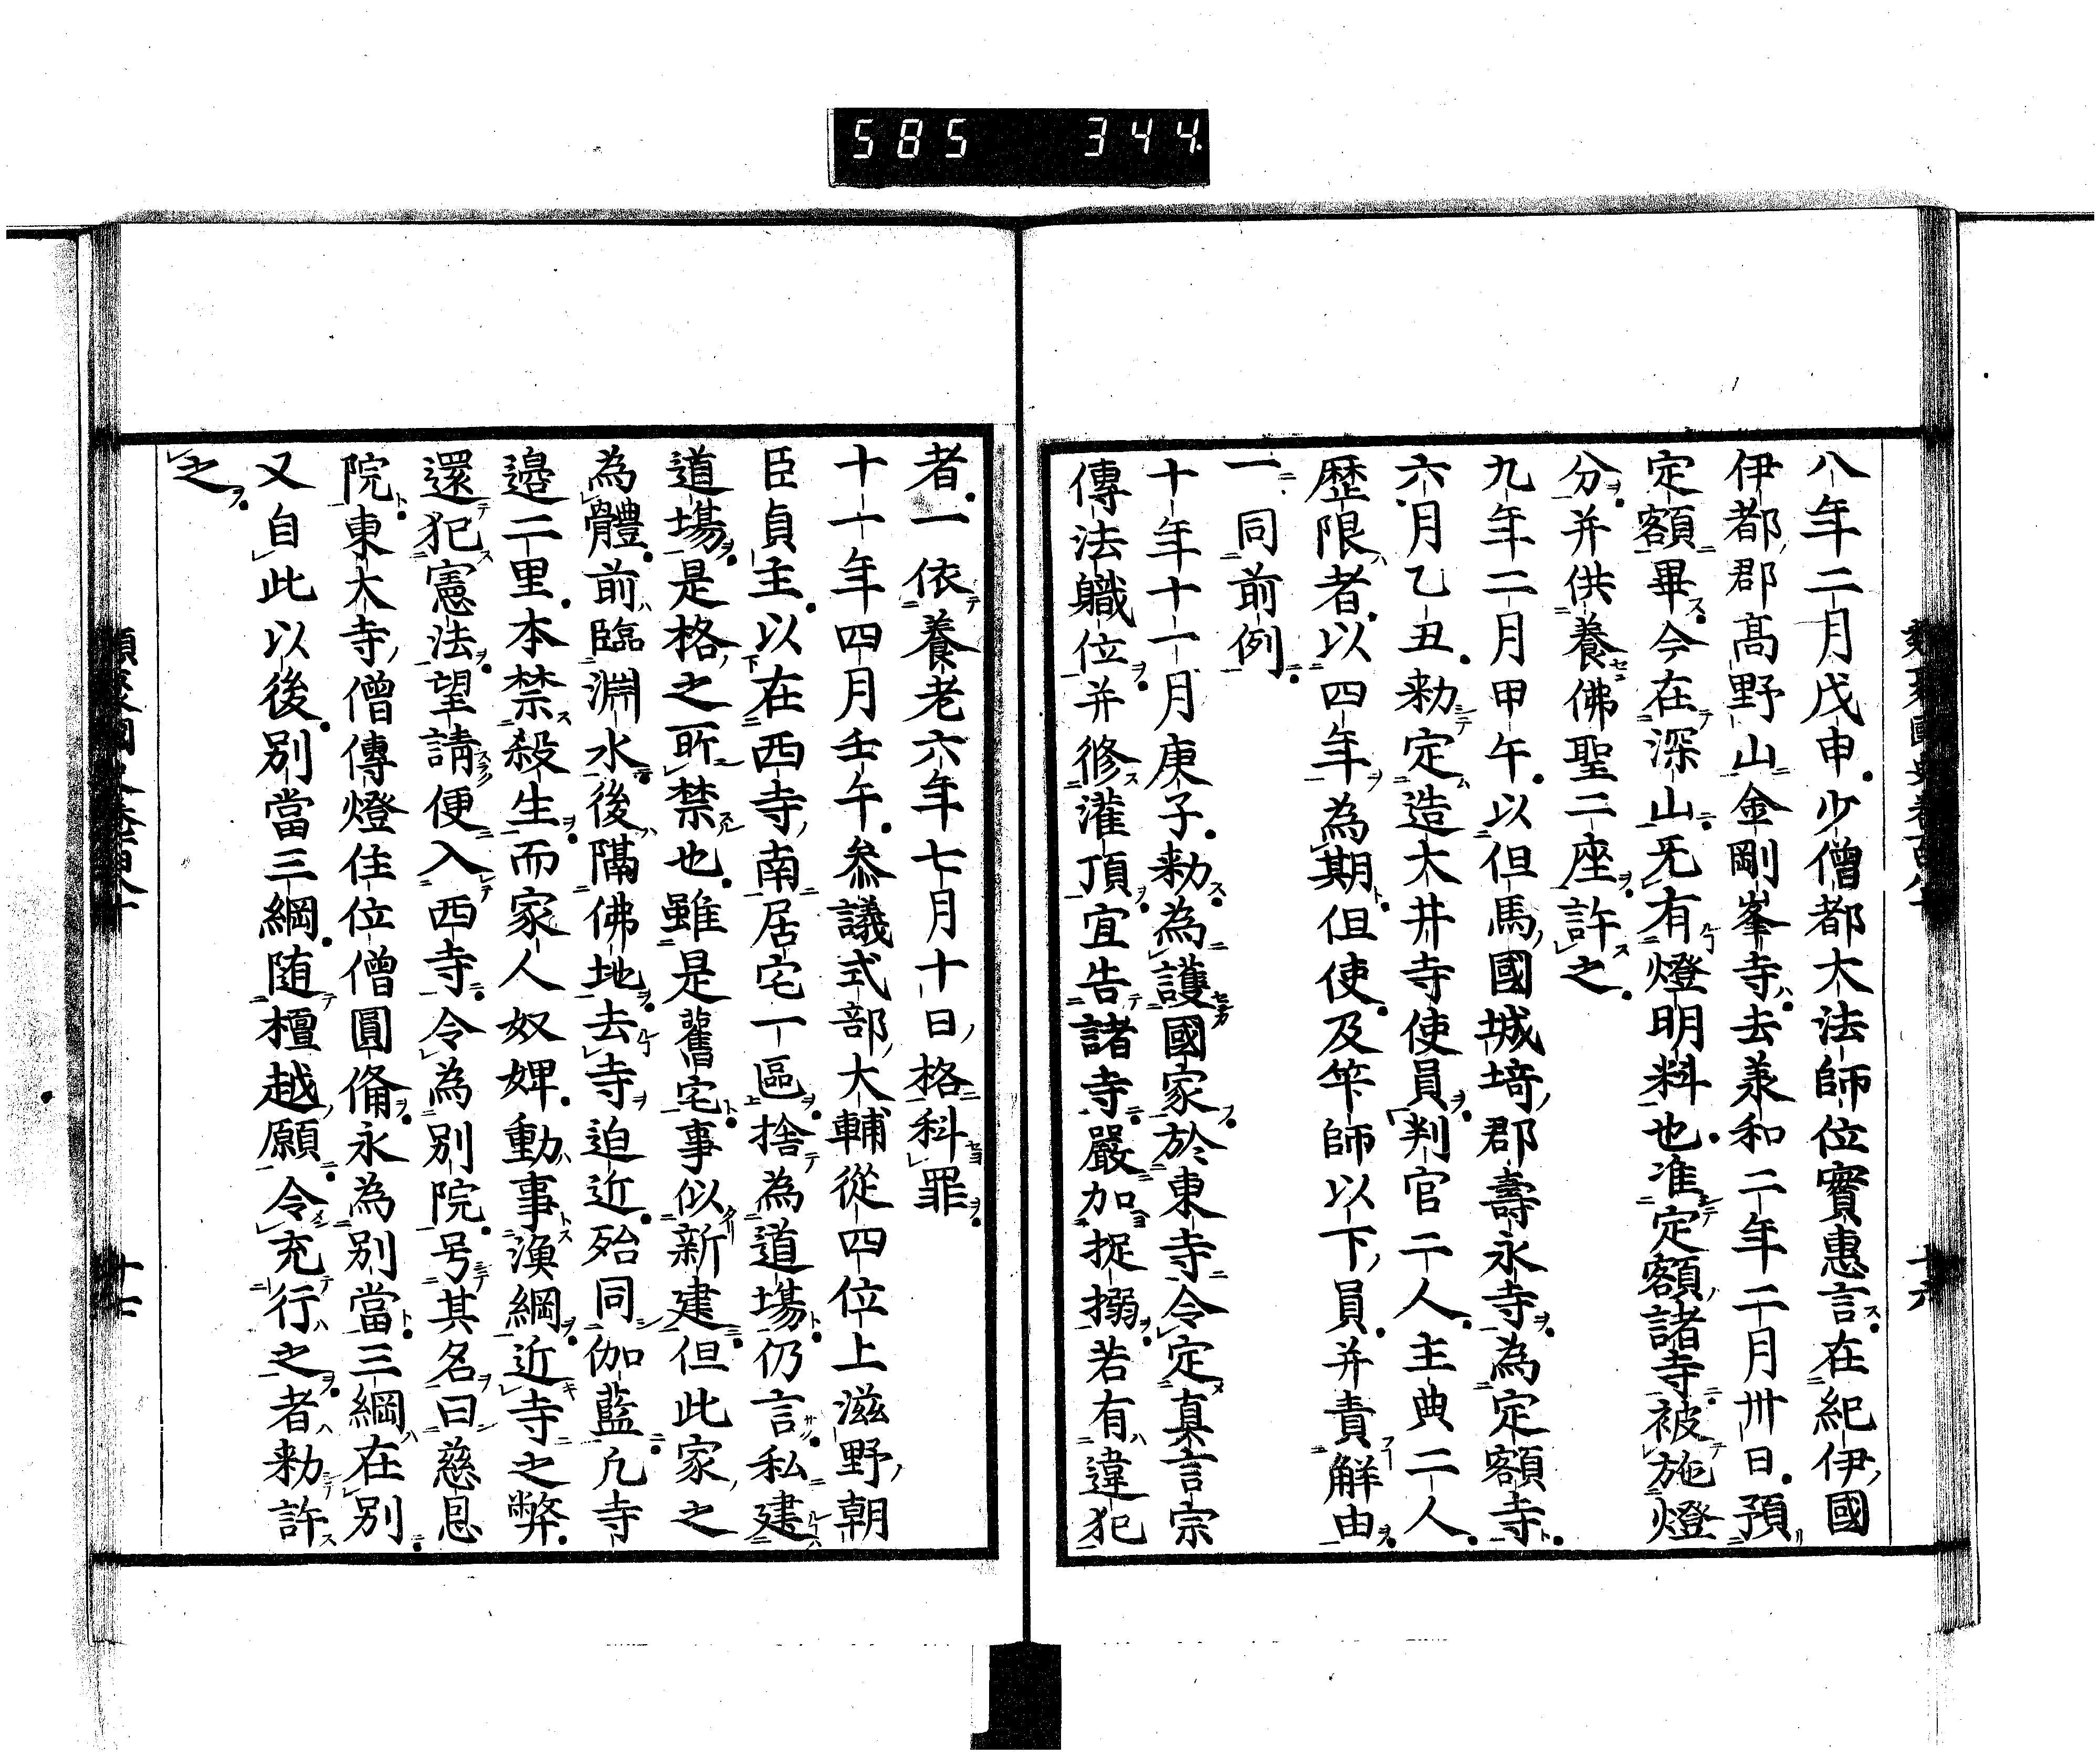 585 344
八年二月戊申少僧都大法師位實惠言在紀伊國
伊都郡髙野山金剛峯寺去羕和二年二月卅日預
定額畢今在深山旡有燈明料也准定額諸寺被施燈
分并供養佛聖二座許之
九年二月甲午以但馬國城埼郡壽永寺為定額寺
六月乙丑勑定造大井寺使員判官二人主典二人
歴限者以四年為期但使及笇師以下員并責解由
一同前例
十年十一月庚子勑為護國家於東寺令定真言宗
傳法職位并修灌頂宜告諸寺嚴加捉搦若有違犯
者一依養老六年七月十日格科罪
十一年四月壬午叅議式部大輔從四位上滋野朝
臣貞主以在西寺南居宅一區捨為道塲仍言私建
道塲是格之所禁也雖是舊宅事似新建但此家之
為體前臨淵水後隔佛地去寺迫近殆同伽藍凢寺
邉二里本禁殺生而家人奴婢動事漁綱近寺之弊
還犯憲法望請便入西寺令為別院号其名曰慈恩
院東大寺僧傳燈住位僧圓俻永為別當三綱在別
又自此以後別當三綱随檀越願令充行之者勑許
之